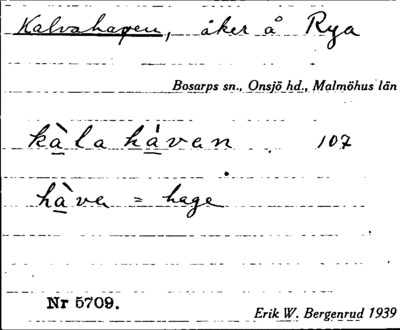 Kalvahagen, åker å Rya
Bosarps sn., Onsjö hd., Malmöhus län
kàla hàvan 107
hàva = hage
Nr 5709.
Erik W. Bergenrud 1939